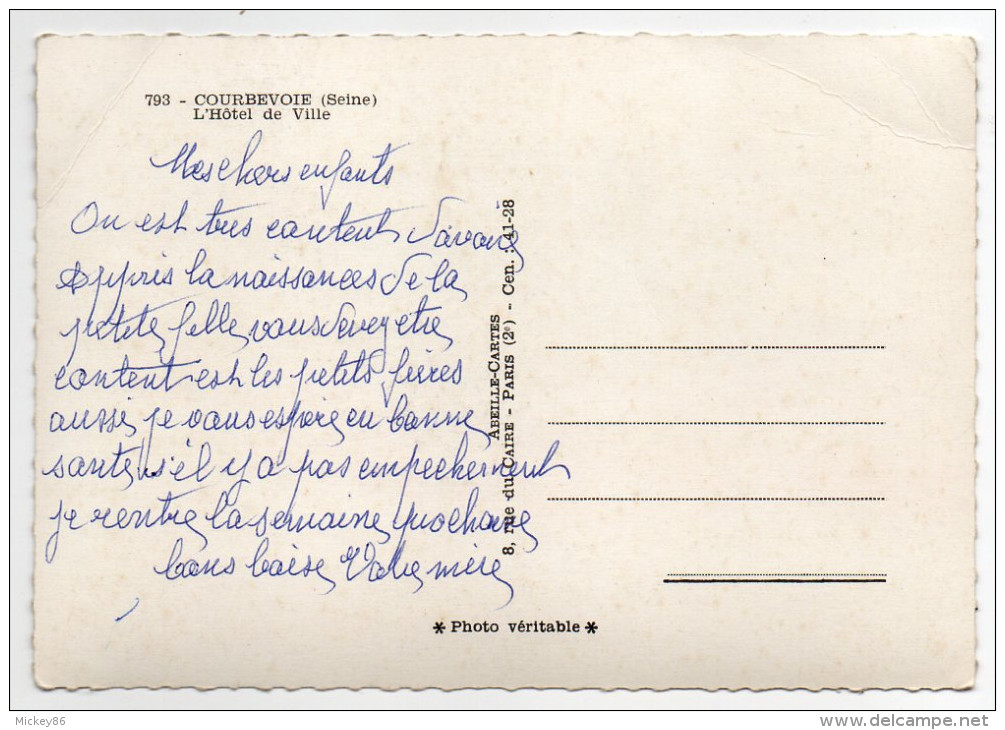 793 - COURBEVOIE (Seine)
L'Hôtel de Ville
Mes chers enfants
On est tres contents d'avoir
appris la naissances de la
petite fille vous devez etre
content est les petits frères
aussi je vous espère en bonne
santé s'él y a pas empechement
je rentre la semaine prochaine
bons baise Votre mère
ABEILLE-CARTES
8, rue du CAIRE - PARIS (2e) - Cen. : 41-28
* Photo véritable *
Mickey86
www.delcampe.net